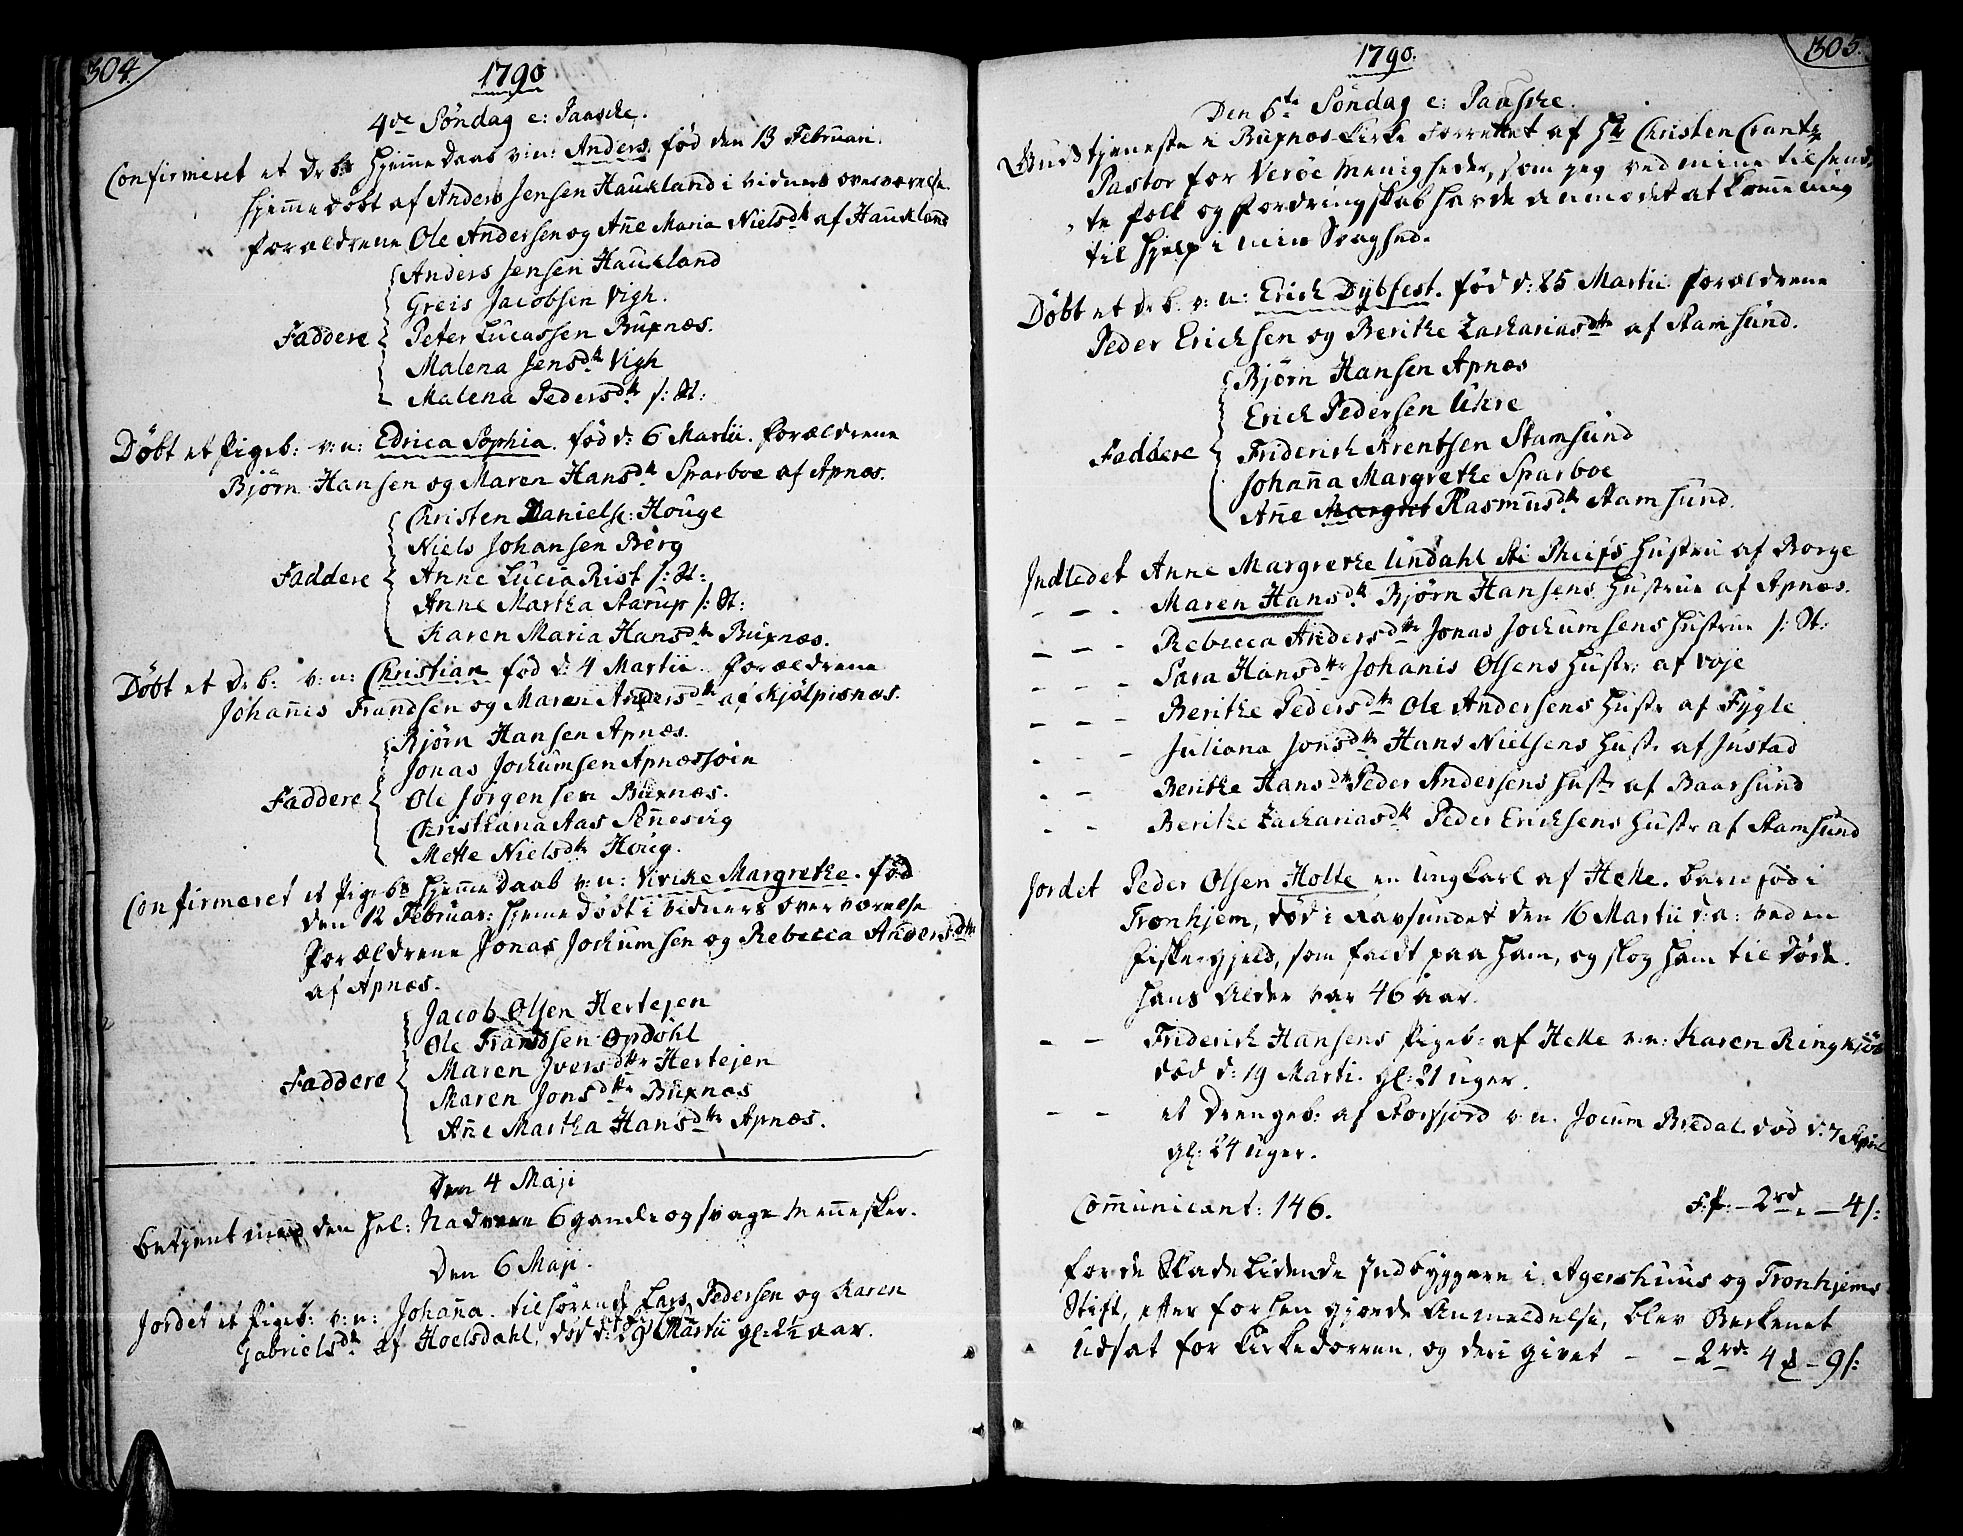 304.
1790
4de Søndag e: Paaske.
Confirmeret et Dr.b. Hjemme Daab v: n: Anders. fød den 13 Februari.
hjemmedøbt af Anders Jensen Haukland i vidners overværelse.
Forældrene Ole Andersen og Añe Maria Nielsdtr af Haukland
Anders Jensen Haukland
Greis Jacobsen Vigh.
Faddere Peter Lucassen Buxnæs.
Malena Jensdtr Vigh
Malena Pedersdtr s: St:
Døbt et Pigeb: v: n: Edrica Sophia. fød d: 6 Martii. Forældrene
Bjørn Hansen og Maren Hansdtr Sparboe af Apnæs.
Christen Daniels: Houge
Niels Johansen Berg
Faddere Anne Lucia Rist s: St:
Anne Martha Aarup s: St:
Karen Maria Hansdtr Buxnæs.
Døbt et Dr:b: v: n: Christian fød d: 4 Martii. Forældrene
Johañes Frandsen og Maren Andersdtr af Kjølpisnæs.
Bjørn Hansen Apnæs.
Jonas Jochumsen Apnæssøin
Faddere Ole Jørgensen Buxnæs.
Christiana Aas Peñesvig
Mette Nielsdtr Houg.
Confirmeret et Pigebs Hjemme Daab v: n: Vivike Margrethe. fød
den 12 Februar: hjemmedøbt i vidners overværelse
Forældrene Jonas Jochumsen og Rebecca Andersdtr
af Apnæs.
Jacob Olsen Hertejen
Ole Frandsen Opdøhl
Faddere Maren Iversdtr Hertejen
Maren Jonsdtr Buxnæs
Añe Martha Hansdtr Apnæs.
Den 4 Maji
betjent med den hel: Nadvere 6 gamle og svage Mennesker.
Den 6 Maji.
Jordet et Pigeb: v: n: Johaña tilhørende Lars Pedersen og Karen
Gabrielsdtr af Hoelsdahl, død d: 29 Martii gl: 2½ aar.
305.
1790.
Den 5te Søndag e: Paaske.
Gudstjeneste i Buxnæs Kirke forrettet af Hr Christen Crantz
Pastor for Verøe Menigheder, som jeg ved mine tilsend-
te folk og Fordringskab havde anmodet at komme mig
til hjelp i min Svaghed.
Døbt et Dr.b. v: n: Erich Dybfest. fød d: 25 Martii. Forældrene
Peder Erichsen og Berithe Zachariasdtr af Stamsund.
Bjørn Hansen Apnæs
Erich Pedersen Uhre
Faddere Friderich Arentsen Stamsund
Johaña Margrethe Sparboe
Añe Margret Rasmusdtr Stamsund.
Indledet Anne Margrethe Lindahl Sti Theifs Hustru af Borge
- - - Maren Hansdtr Bjørn Hansens Hustrue af Apnæs.
- - - Rebecca Andersdtr Jonas Jochumsens Hustrue s: St:
- - - Sara Hansdtr Johanis Olsens Hustr: af Voje
- - - Berithe Pedersdtr Ole Andersens Hustr af Fygle
- - Juliana Jonsdtr Hans Nielsens Hust: af Justad
- - Berithe Hansdtr Peder Andersens Hustr af Baarsund
- - Berithe Zachariasdtr Peder Erichsens Hustr af Stamsund
Jordet Peder Olsen Holte en ung Karl af Helle. barnefød i
Tronhjem, død i Ravsundet den 16 Martii d: a: ved en
Fiske-Hjeld, som faldt paa ham, og slog ham til Døde.
hans Alder var 46 aar.
- - Friderich Hansens Pigeb: af Helle v: n: Karen Ringkjøb
død d: 19 Marti. gl: 21 uger.
- - et Drengeb: af Storfjord v: n. Jocum Bredal. død d: 7 April
gl: 24 uger.
Com̃unicant: 146. F:f: - 2rd. - 4s:
for de Skadelidende Indbyggere i Agershuus og Tronhjems
Stift, efter forhen gjorde Anmeldelse, blev Bekkenet
udsat for Kirkedorren, og deri givet - - 2rd. 4 ₰ - 9s: